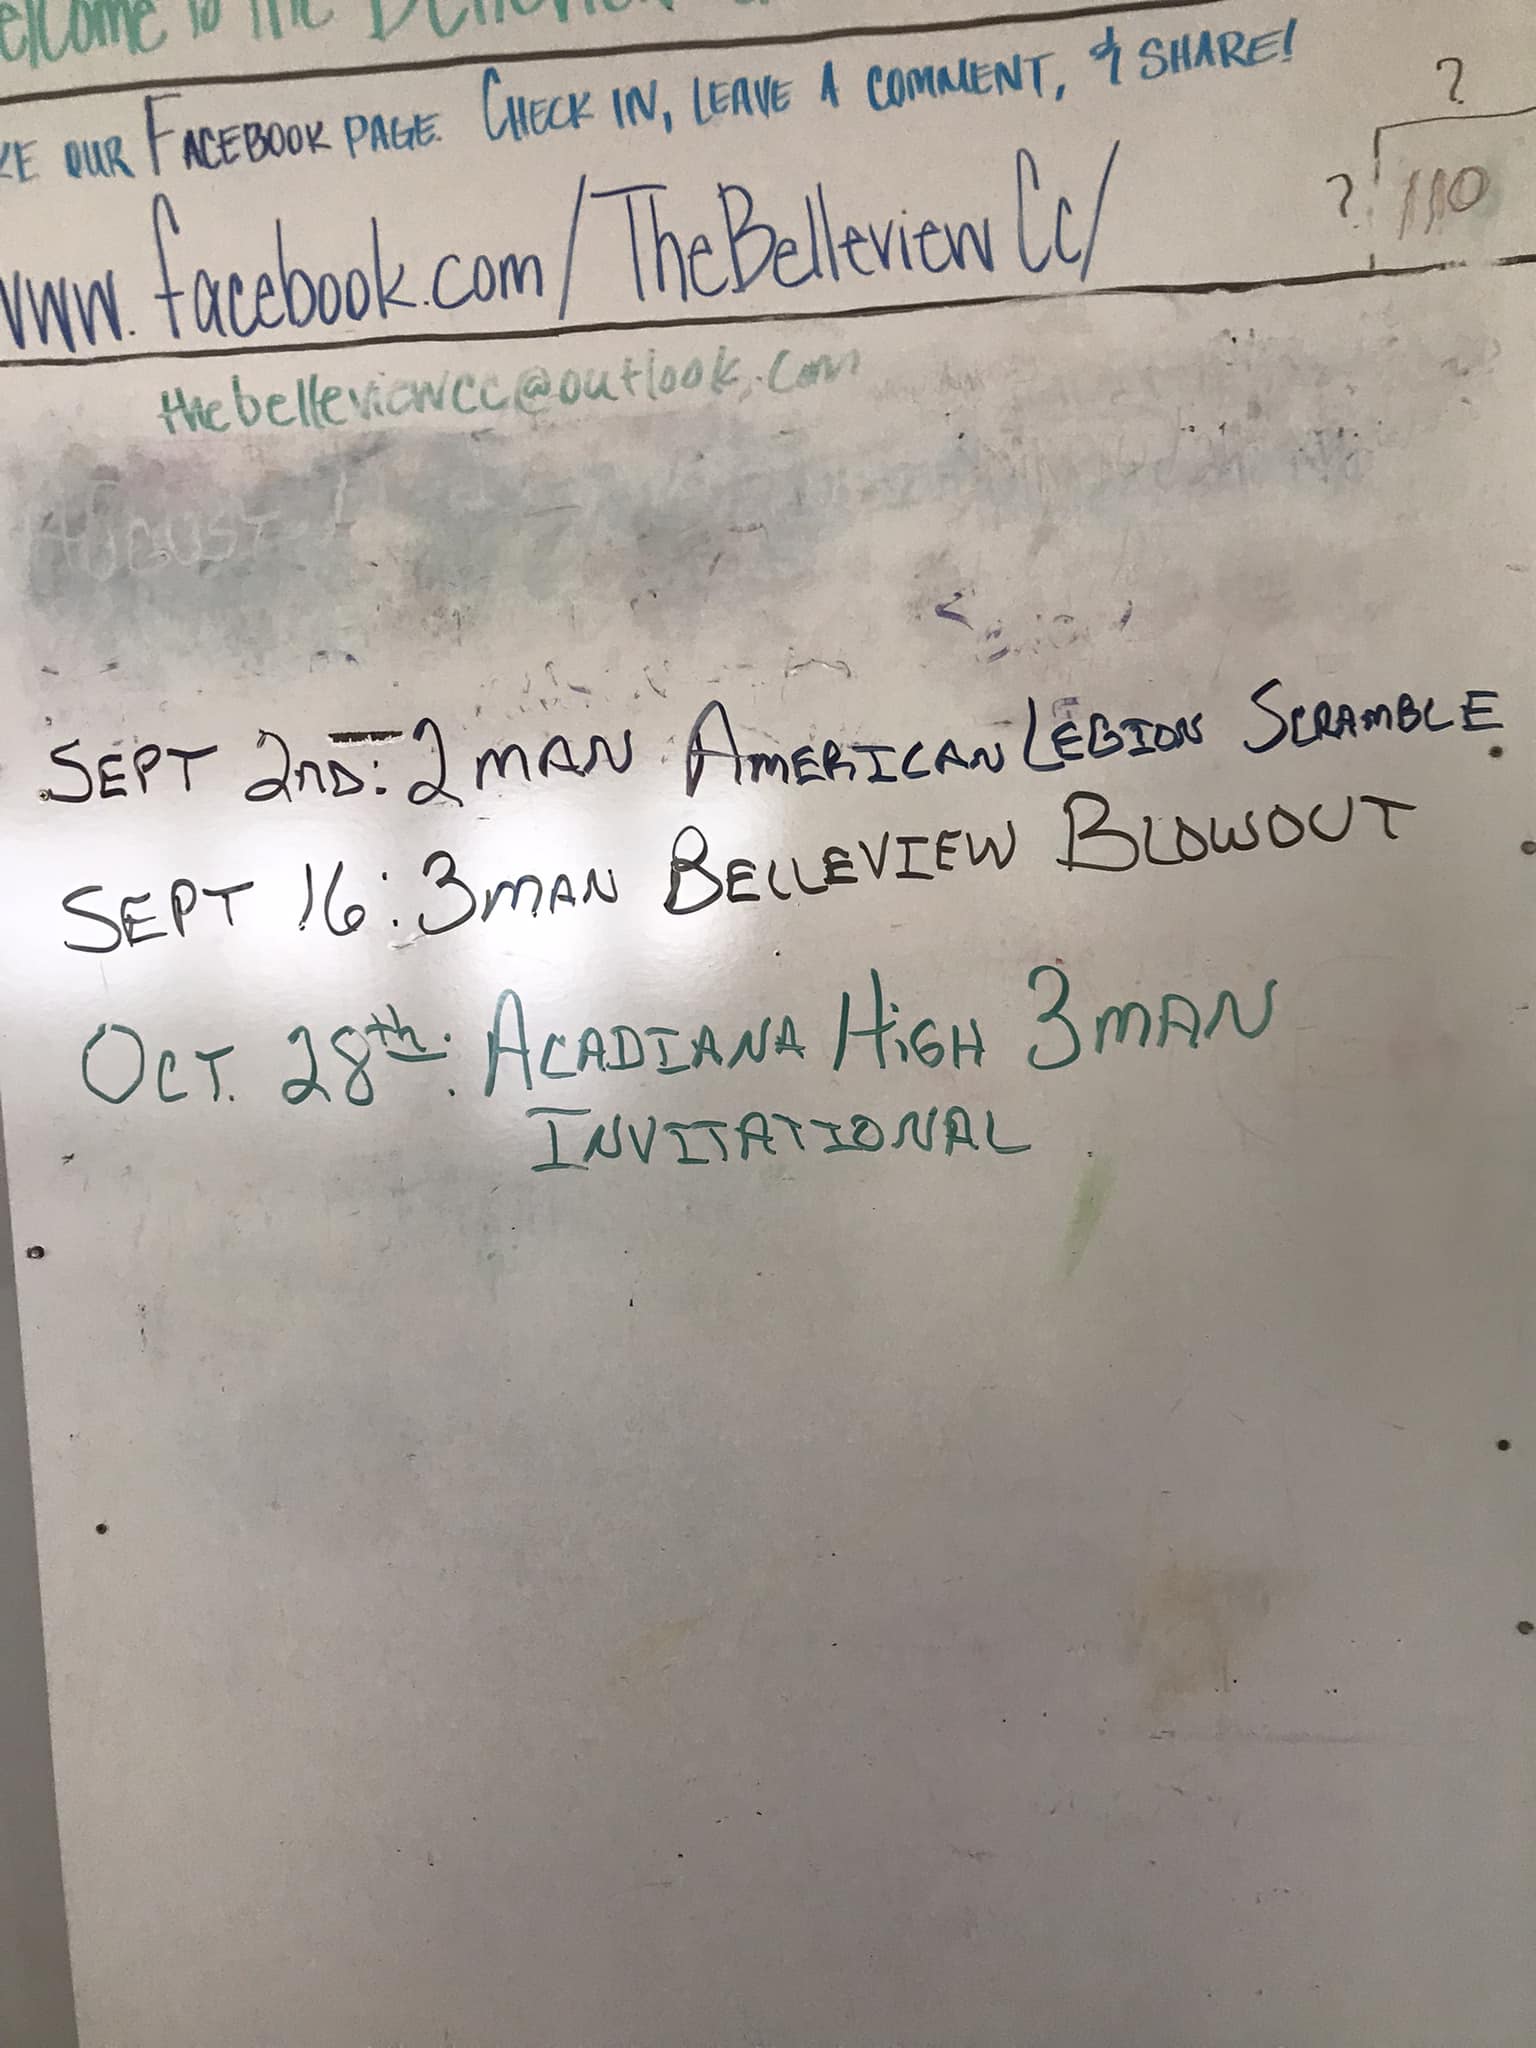 Welcome to the Belleview
OUR FACEBOOK PAGE. CHECK IN, LEAVE A COMMENT, & SHARE!
www.facebook.com/TheBelleviewCc/
?
? 110
thebelleviewcc@outlook.com
AUGUST
SEPT 2ND: 2 MAN AMERICAN LEGION SCRAMBLE
SEPT 16: 3 MAN BELLEVIEW BLOWOUT
OCT. 28th: ACADIANA HIGH 3 MAN
INVITATIONAL